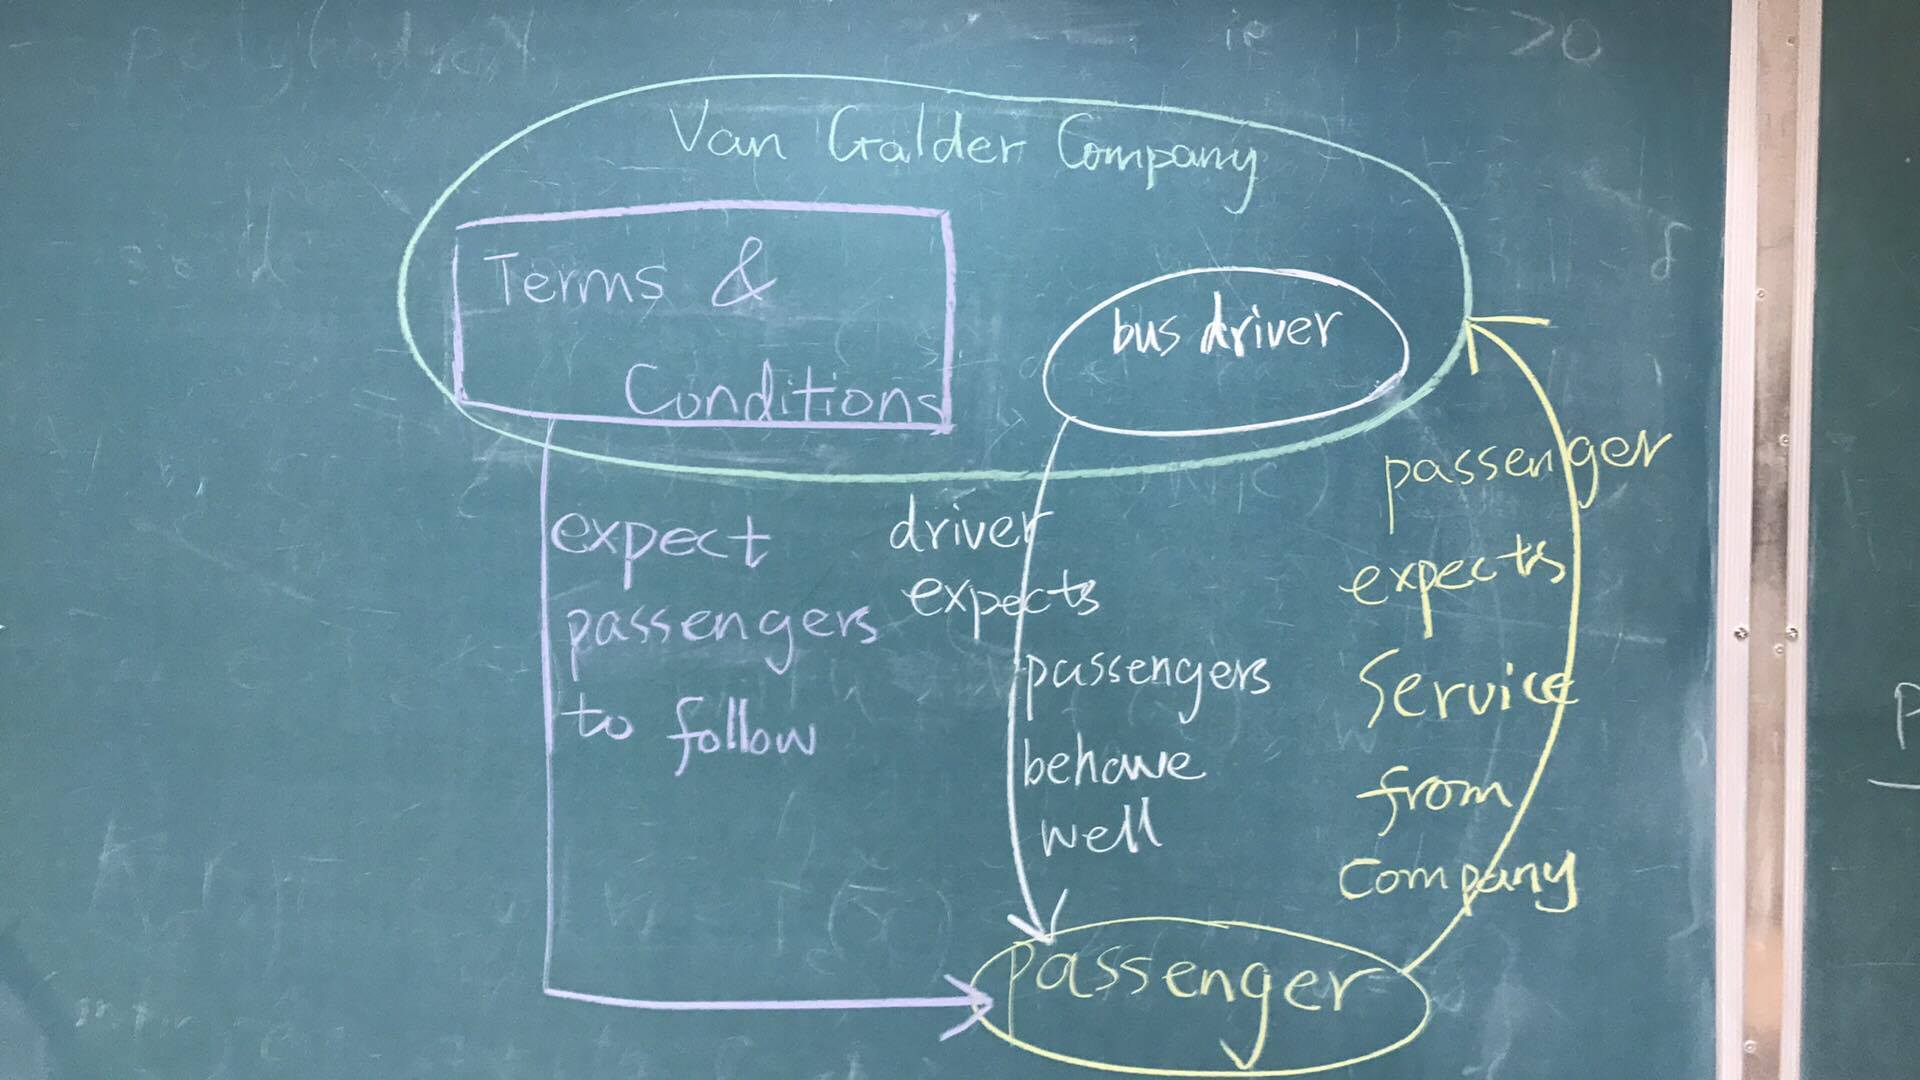 Van Galder Company
Terms &
Conditions
bus driver
expect
passengers
to follow
driver
expects
passengers
behave
well
passenger
expects
Service
from
Company
passenger